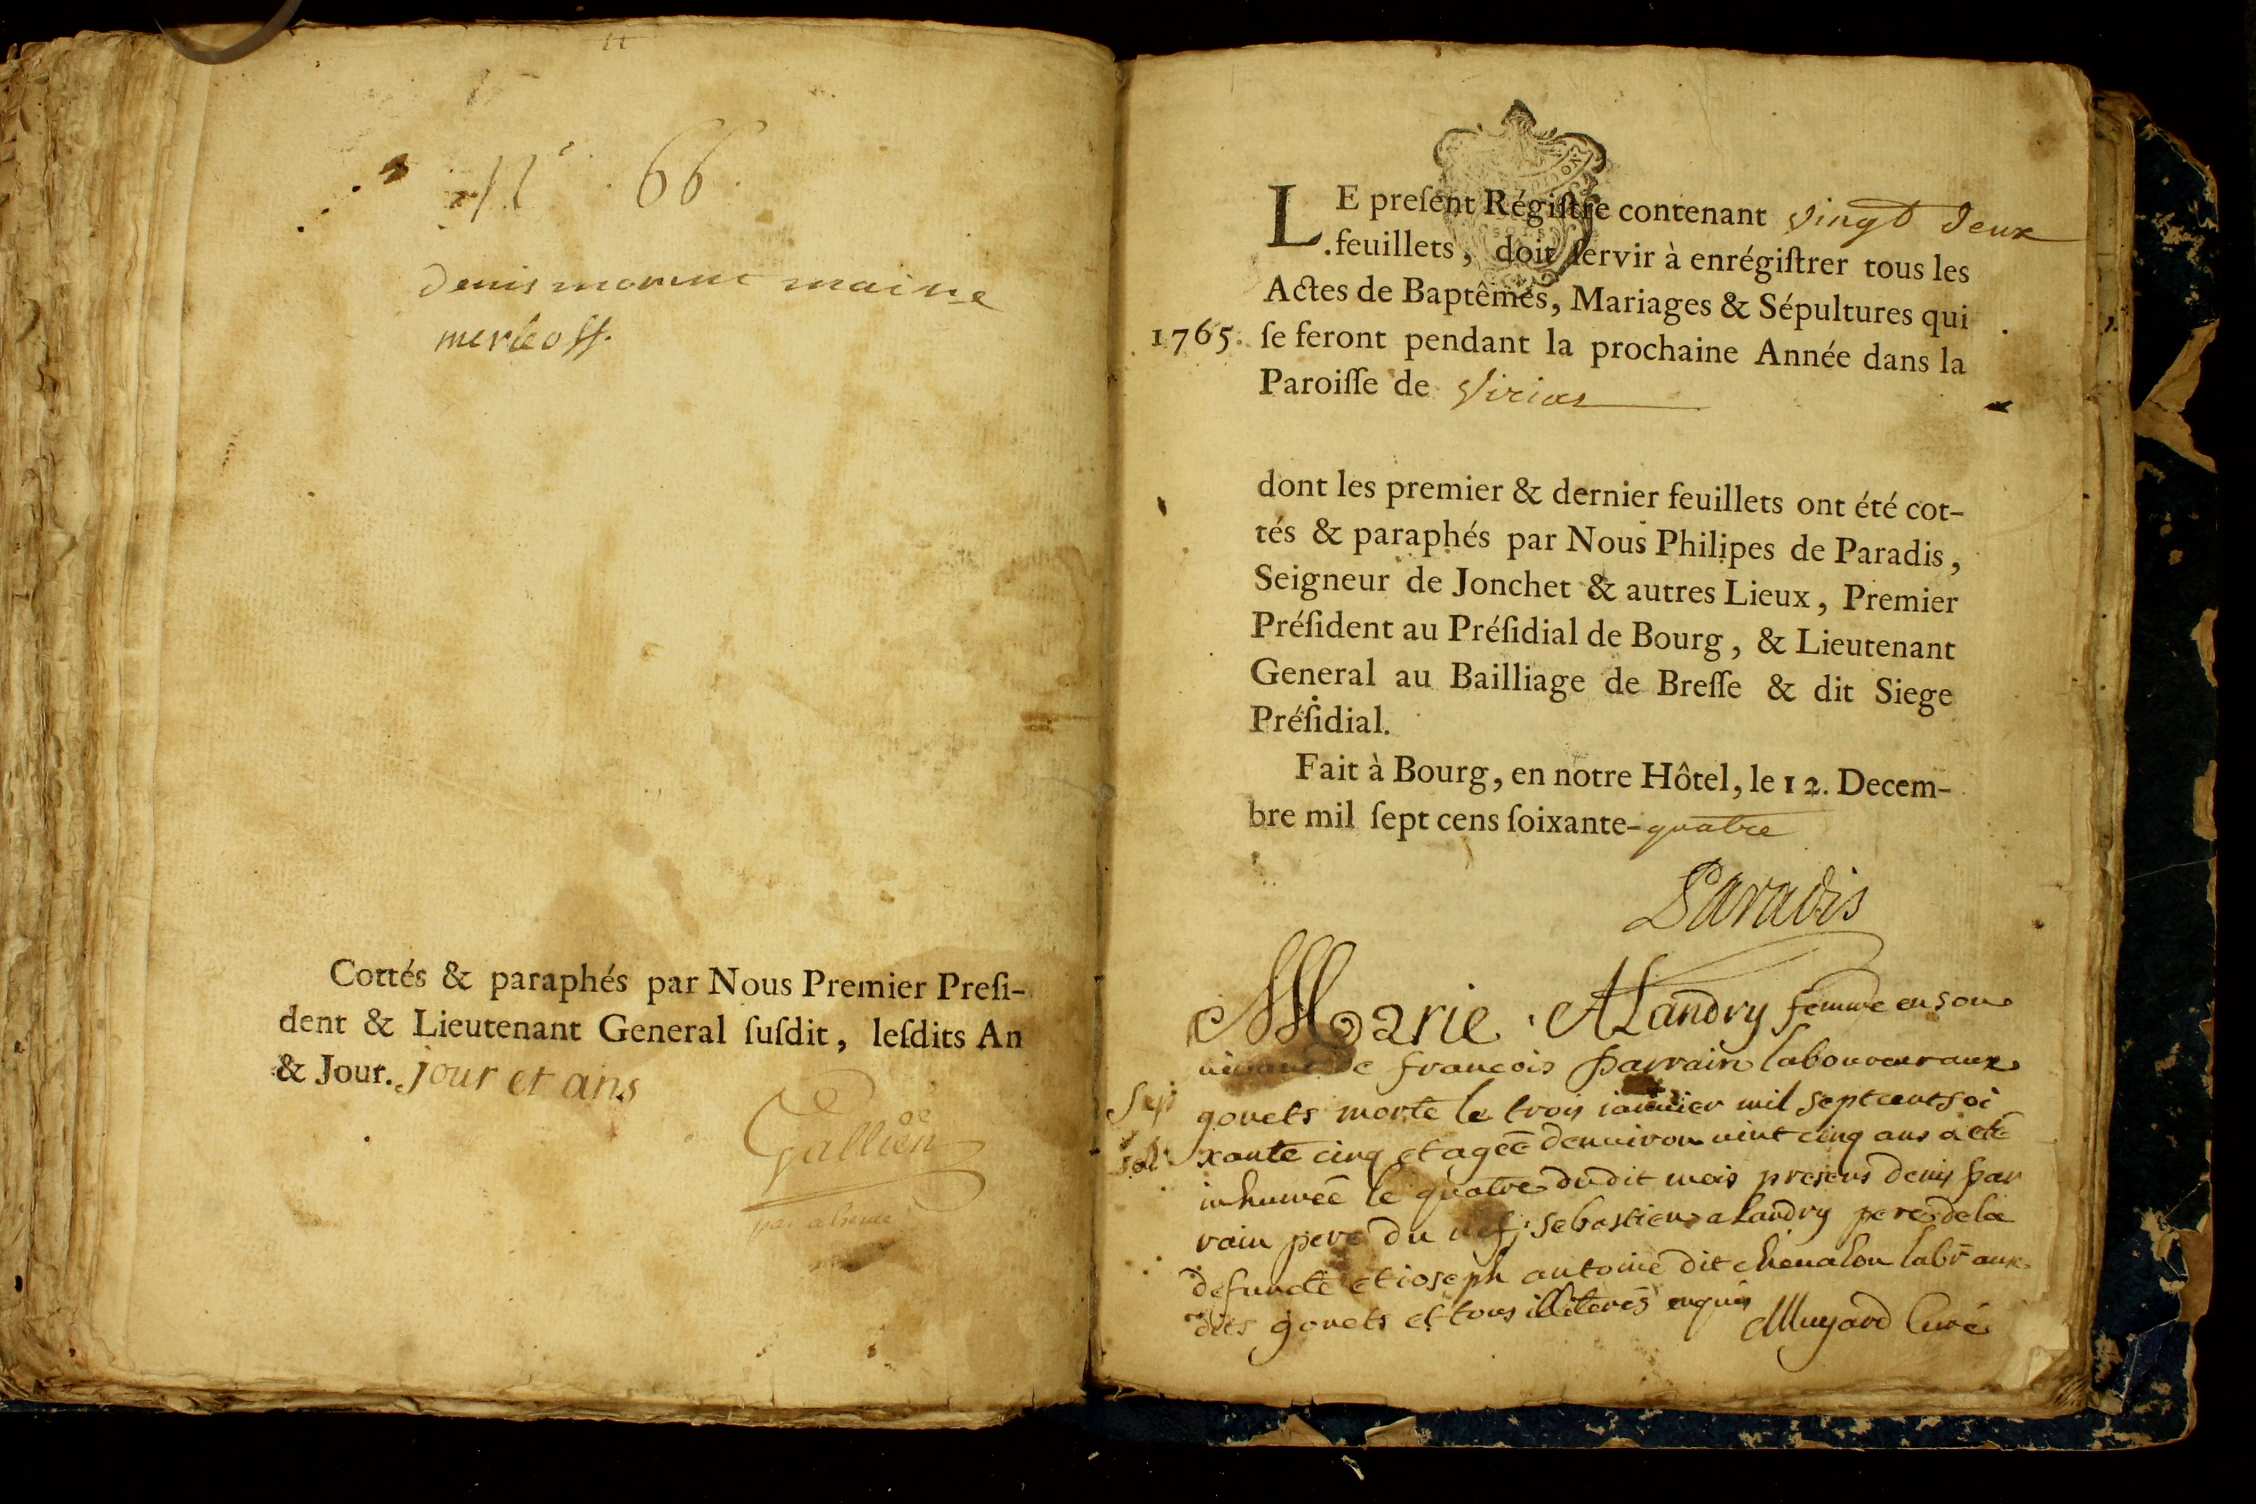 N° 66
denis morinc maine
merle off.
Cottés & paraphés par Nous Premier Preſi-
dent & Lieutenant General ſuſdit, leſdits An
& Jour. jour et ans
Gallien
par absence
LE preſent Régiſtre contenant vingt deux
feuillets, doit ſervir à enrégiſtrer tous les
Actes de Baptêmes, Mariages & Sépultures qui
1765. ſe feront pendant la prochaine Année dans la
Paroiſſe de Viriat
dont les premier & dernier feuillets ont été cot-
tés & paraphés par Nous Philipes de Paradis,
Seigneur de Jonchet & autres Lieux, Premier
Préſident au Préſidial de Bourg, & Lieutenant
General au Bailliage de Breſſe & dit Siege
Préſidial.
Fait à Bourg, en notre Hôtel, le 12. Decem-
bre mil ſept cens ſoixante-quatre
Paradis
Marie ALandry femme en son
vivant de francois parrain laboureur aux
Sep gouets morte le trois ianvier mil septcentsoi
xante cinq et ageé denviron vint cinq ans a eté
inhumeé le quatre dudit mois presens denis par
rain pere du sebastien alandry pere de la
defuncte et ioseph antoine dit chenalon labr aux
dits gouets et tous illiterés enquis
Muyard Curé